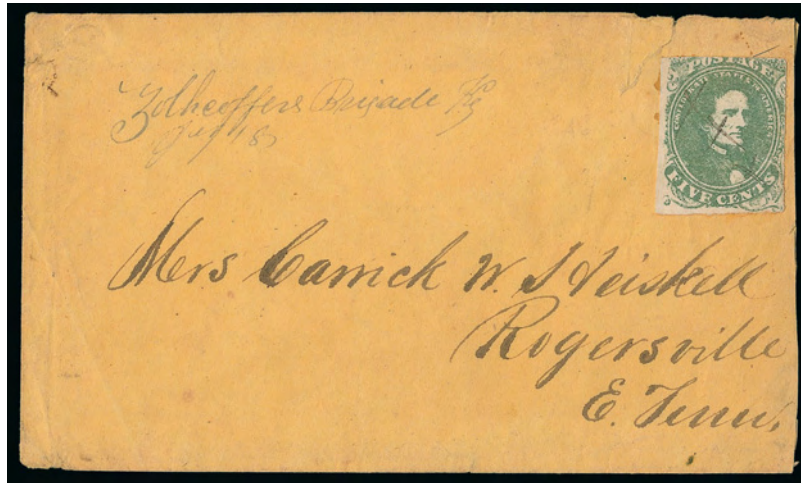 Zollicoffers Brigade Ky
POSTAGE
CONFEDERATE STATES OF AMERICA
FIVE CENTS
Mrs Carrick W. Heiskell
Rogersville
E. Tenn.